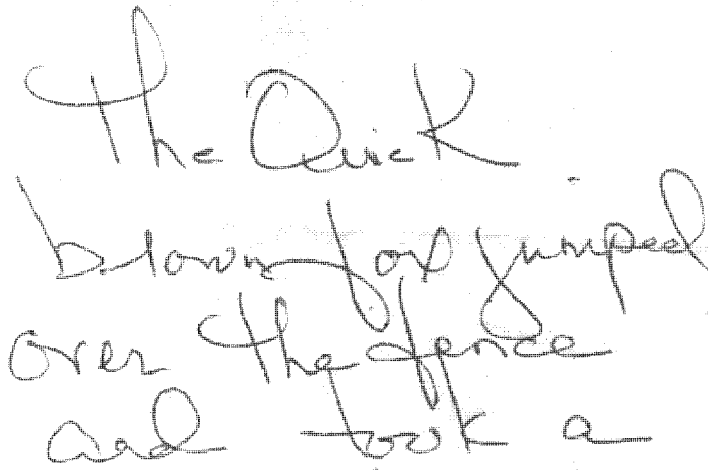 The Quick
brown fox jumped
over the fence
and took a